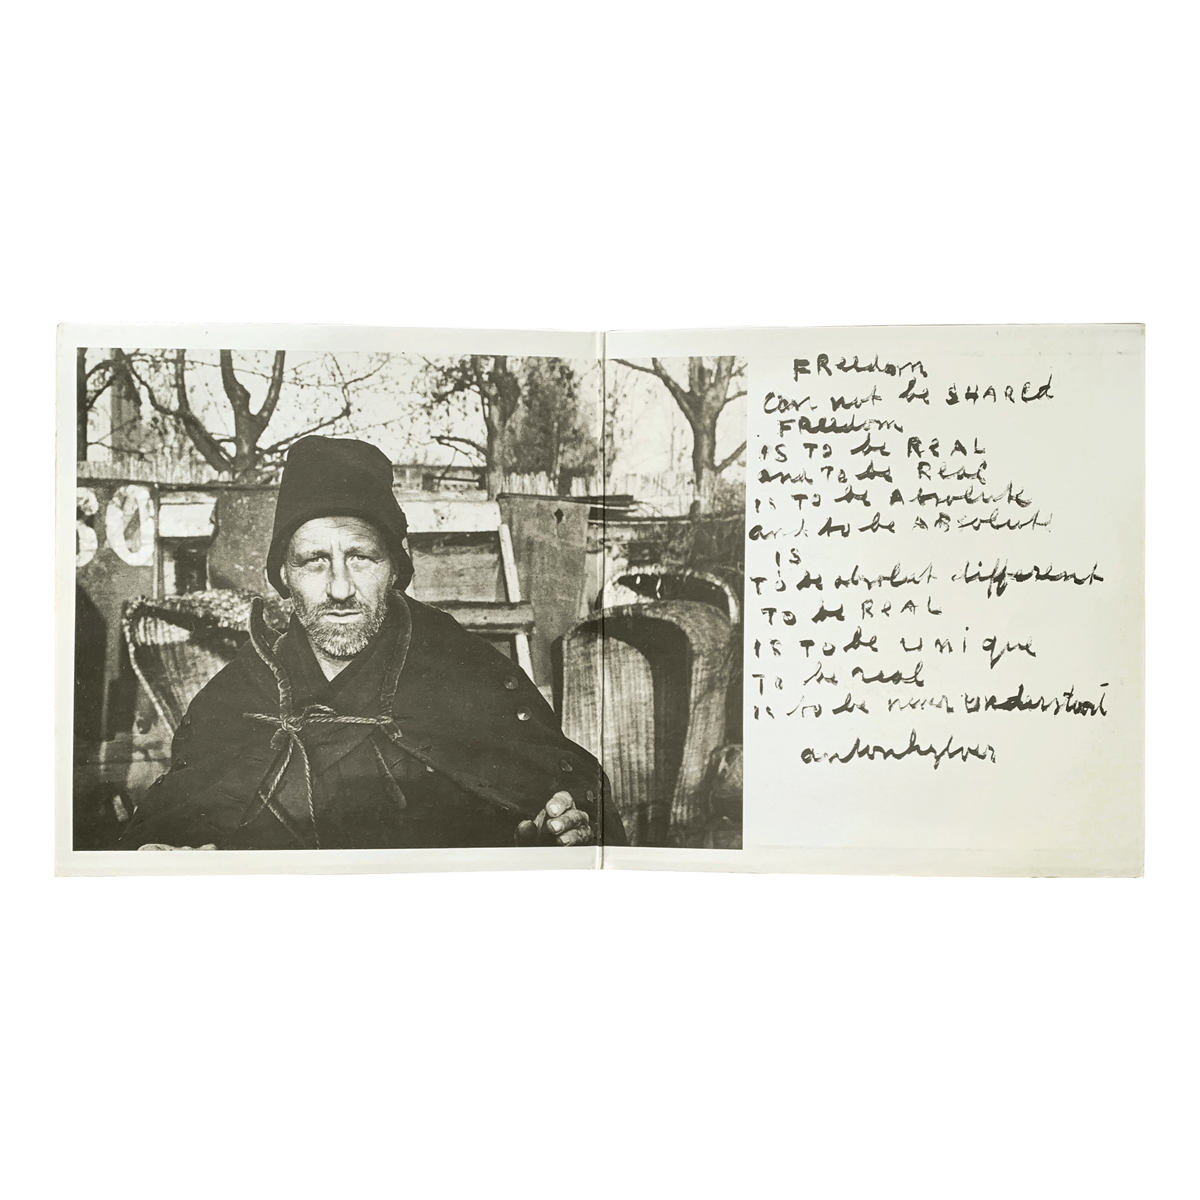 60
FReedom
Can not be SHARED
FReedom
IS TO be REAL
and To be Real
is TO be Absolute
and to be ABsolute
IS
TO be absolut different
TO be REAL
IS TO be unique
To be real
is to be never understood